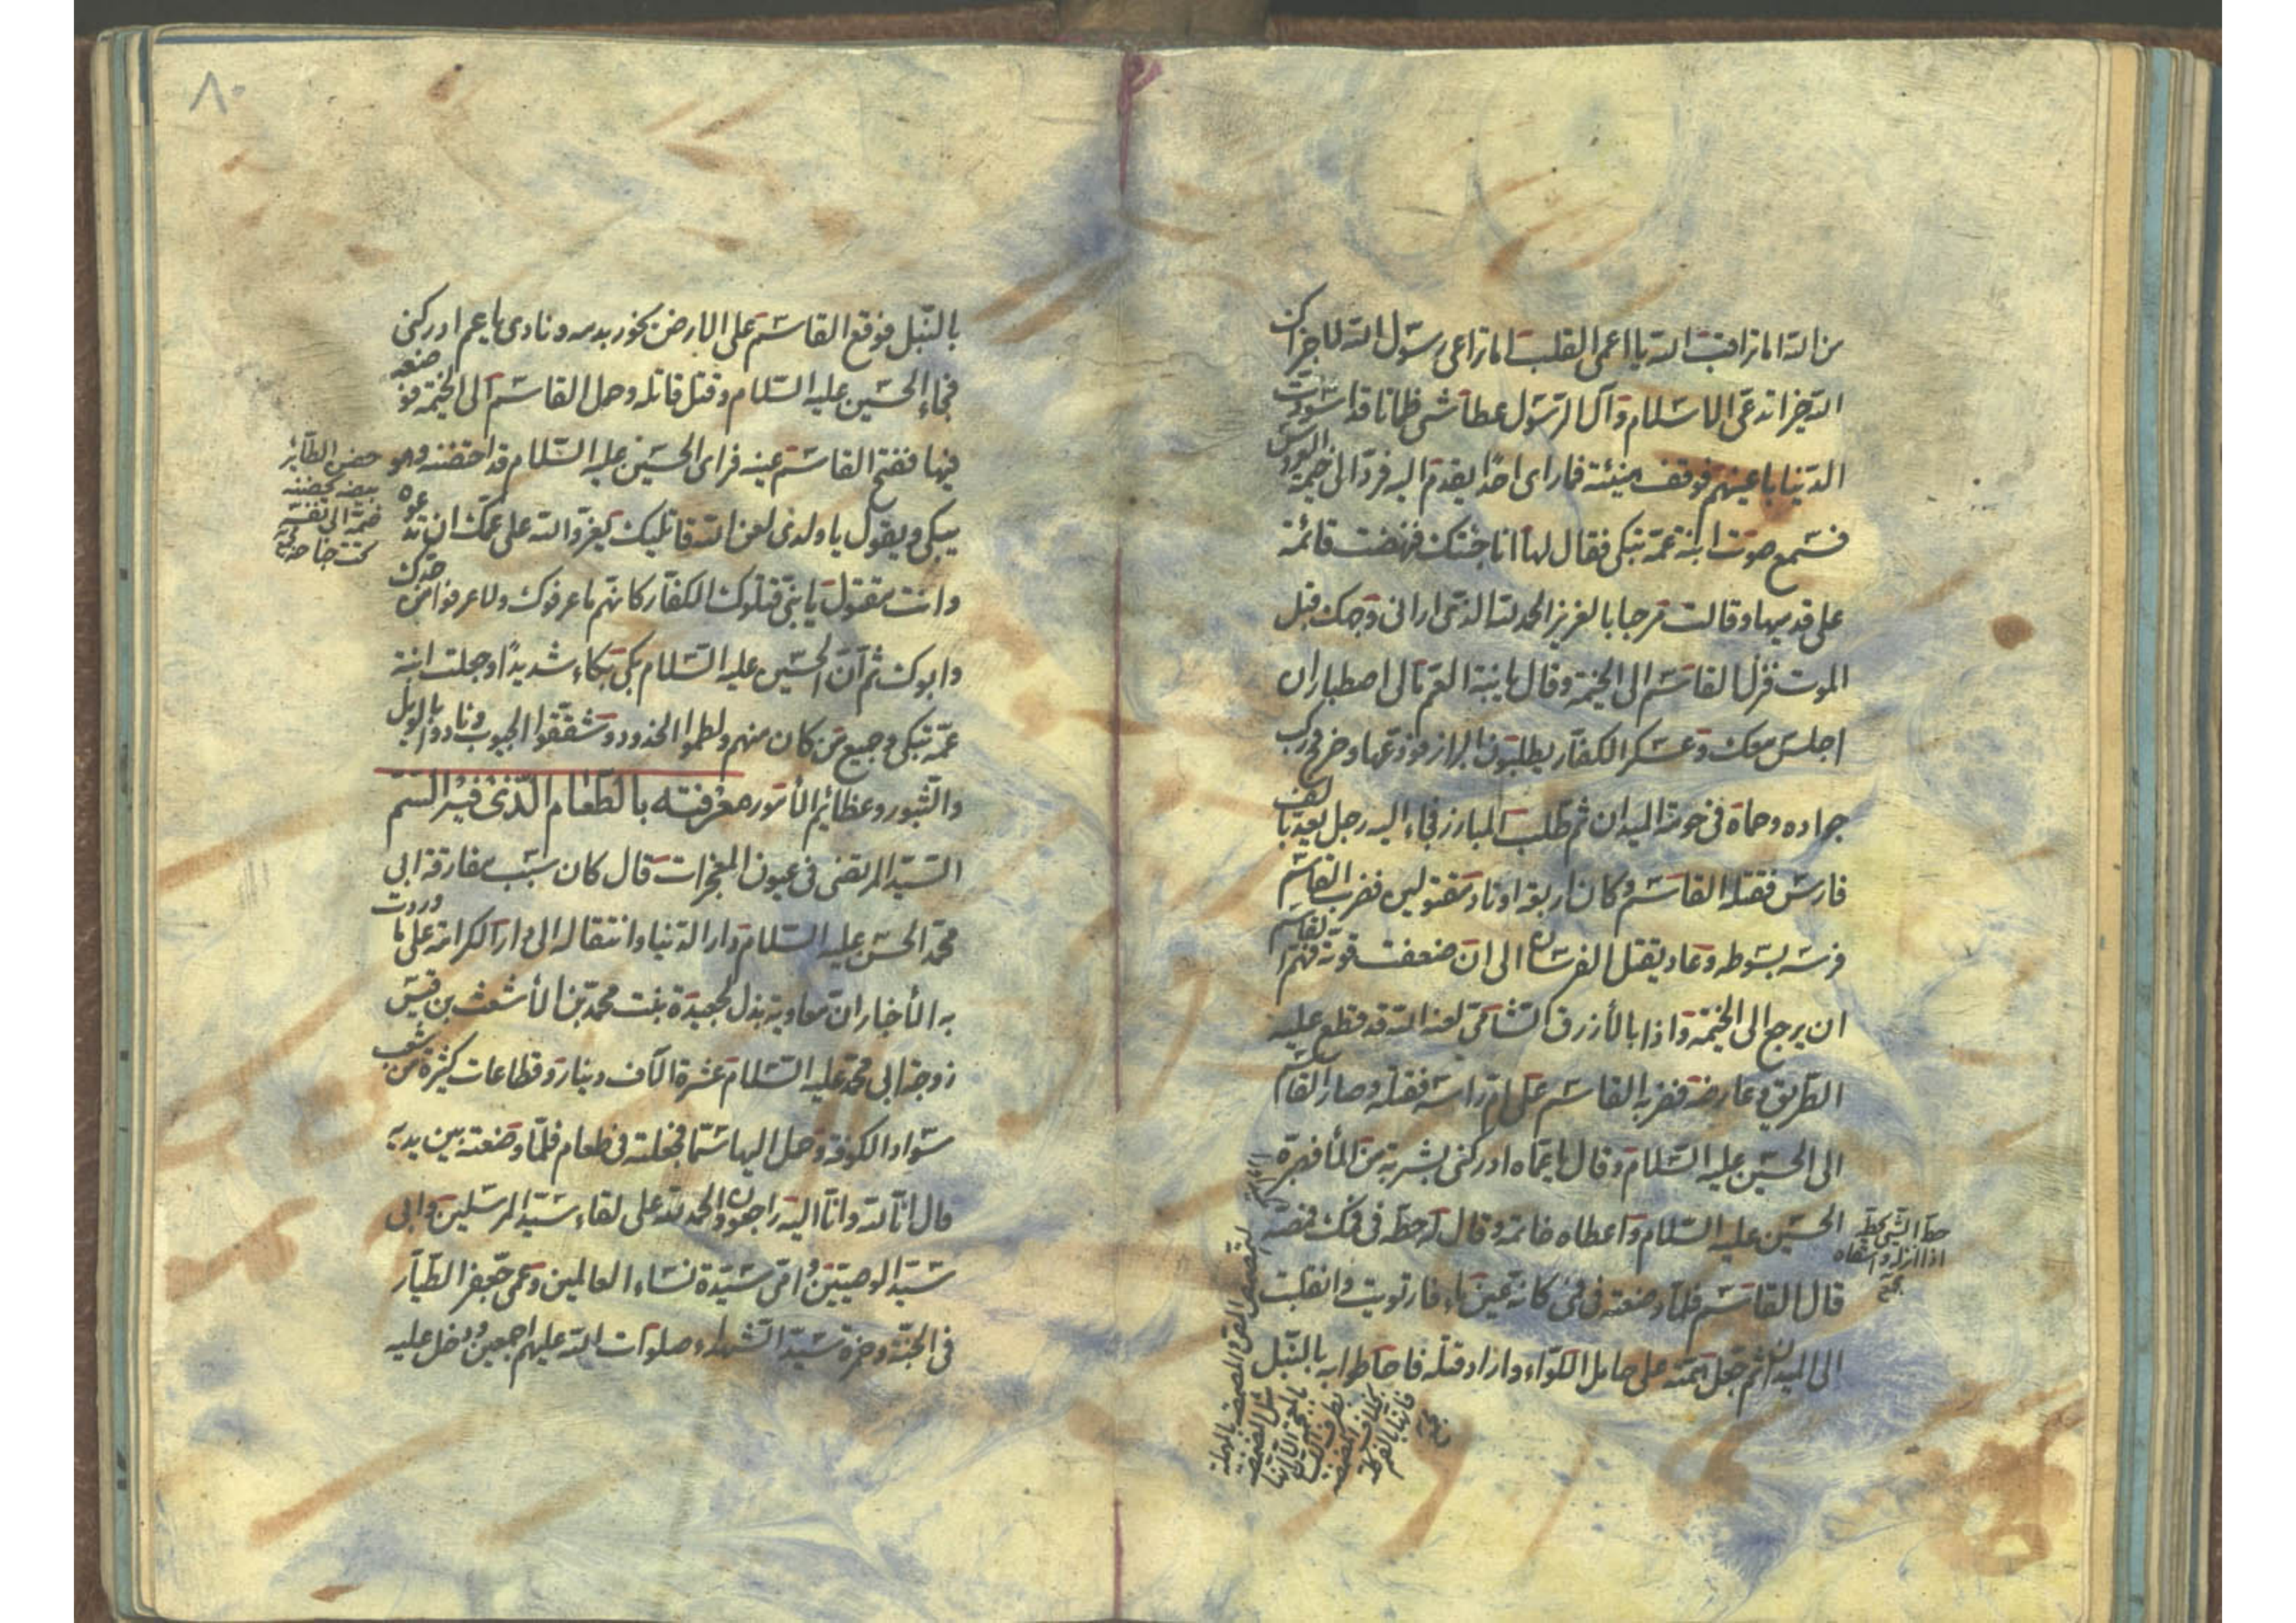 من الله اما تراقب الله يا اعمى القلب اما تراعى رسول الله لا جزاك
الله خيرا تدعى الاسلام وآل الرسول عطاشى ظمانا قد اسودت
الدنيا باعينهم فوقف هنيئة فما راى احدا يقدم اليه فرد الى خيمة العروس
فسمع صوت ابنة عمه تبكى فقال لها انا جئتك فنهضت قائمة
على قدميها وقالت مرحبا بالعزيز الحمد لله الذى ارانى وجهك قبل
الموت فنزل القاسم الى الخيمة وقال يا بنة العم مالى اصطبار ان
اجلس معك وعسكر الكفار يطلبون البراز فودعها وخرج وركب
جواده وحماه فى حومة الميدان ثم طلب المبارز فجاء اليه رجل يعد بالف
فارس فقتله القاسم وكان اربعة اولاد مقتولين فضرب القاسم
فرسه بسوطه وعاد يقتل الفرسان الى ان ضعفت قوته فهم القاسم
ان يرجع الى الخيمة واذا بالأزرق الشامى لعنه الله قد قطع عليه
الطريق وعارضه فضربه القاسم على ام راسه فقتله وصار القاسم
الى الحسين عليه السلام وقال يا عماه ادركنى بشربة من الماء فصبره
الحسين عليه السلام واعطاه خاتمه وقال له حطه فى فمك فمصه
حط الشئ يحطه
اذا انزله والقاه
قال القاسم فلما وضعته فى فمى كانه عين ماء فارتويت وانقلبت
الى الميدان ثم جعل همته على حامل اللواء واراد قتله فاحاطوا به بالنبل
٨٠
بالنبل فوقع القاسم على الارض يخور بدمه ونادى يا عم ادركنى
فجاء الحسين عليه السلام وقتل قاتله وحمل القاسم الى الخيمة فوضعه
فيها ففتح القاسم عينه فراى الحسين عليه السلام قد احتضنه وهو
حضن الطائر
بيضه يحضنه
ضمه الى نفسه
تحت جناحه
يبكى ويقول يا ولدى لعن الله قاتليك يعز والله على عمك ان تدعوه
وانت مقتول يا بنى قتلوك الكفار كانهم ما عرفوك ولا عرفوا من جدك
وابوك ثم ان الحسين عليه السلام بكى بكاء شديدا وجعلت ابنة
عمه تبكى وجميع من كان منهم ولطموا الخدود وشققوا الجيوب ونادوا بالويل
والثبور وعظائم الأمور معرفته بالطعام الذى فيه السم
السيد المرتضى فى عيون المعجزات قال كان سبب مفارقة ابى
محمد الحسن عليه السلام دار الدنيا وانتقاله الى دار الكرامة على ما وردت
به الأخبار ان معاوية بذل لجعيدة بنت محمد بن الأشعث بن قيس
زوجة ابى محمد عليه السلام عشرة الآف دينار وقطاعات كثيرة من شعب
سواد الكوفة وحمل اليها سما فجعلته فى طعام فلما وضعته بين يديه
قال انا لله وانا اليه راجعون والحمد لله على لقاء سيد المرسلين وابى
سيد الوصيين وامى سيدة نساء العالمين وعمى جعفر الطيار
فى الجنة وحمزة سيد الشهداء صلوات الله عليهم اجمعين ودخل عليه